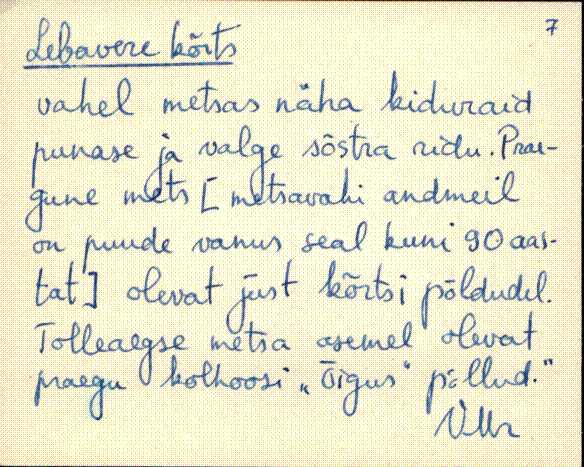 7
Lebavere kõrts
vahel metsas näha kiduraid
punase ja valge sõstra ridu. Prae-
gune mets [metsavahi andmeil
on puude vanus seal kuni 90 aas-
tat] olevat just kõrtsi põldudel.
Tolleaegse metsa asemel olevat
praegu kolhoosi „Õigus“ põllud."